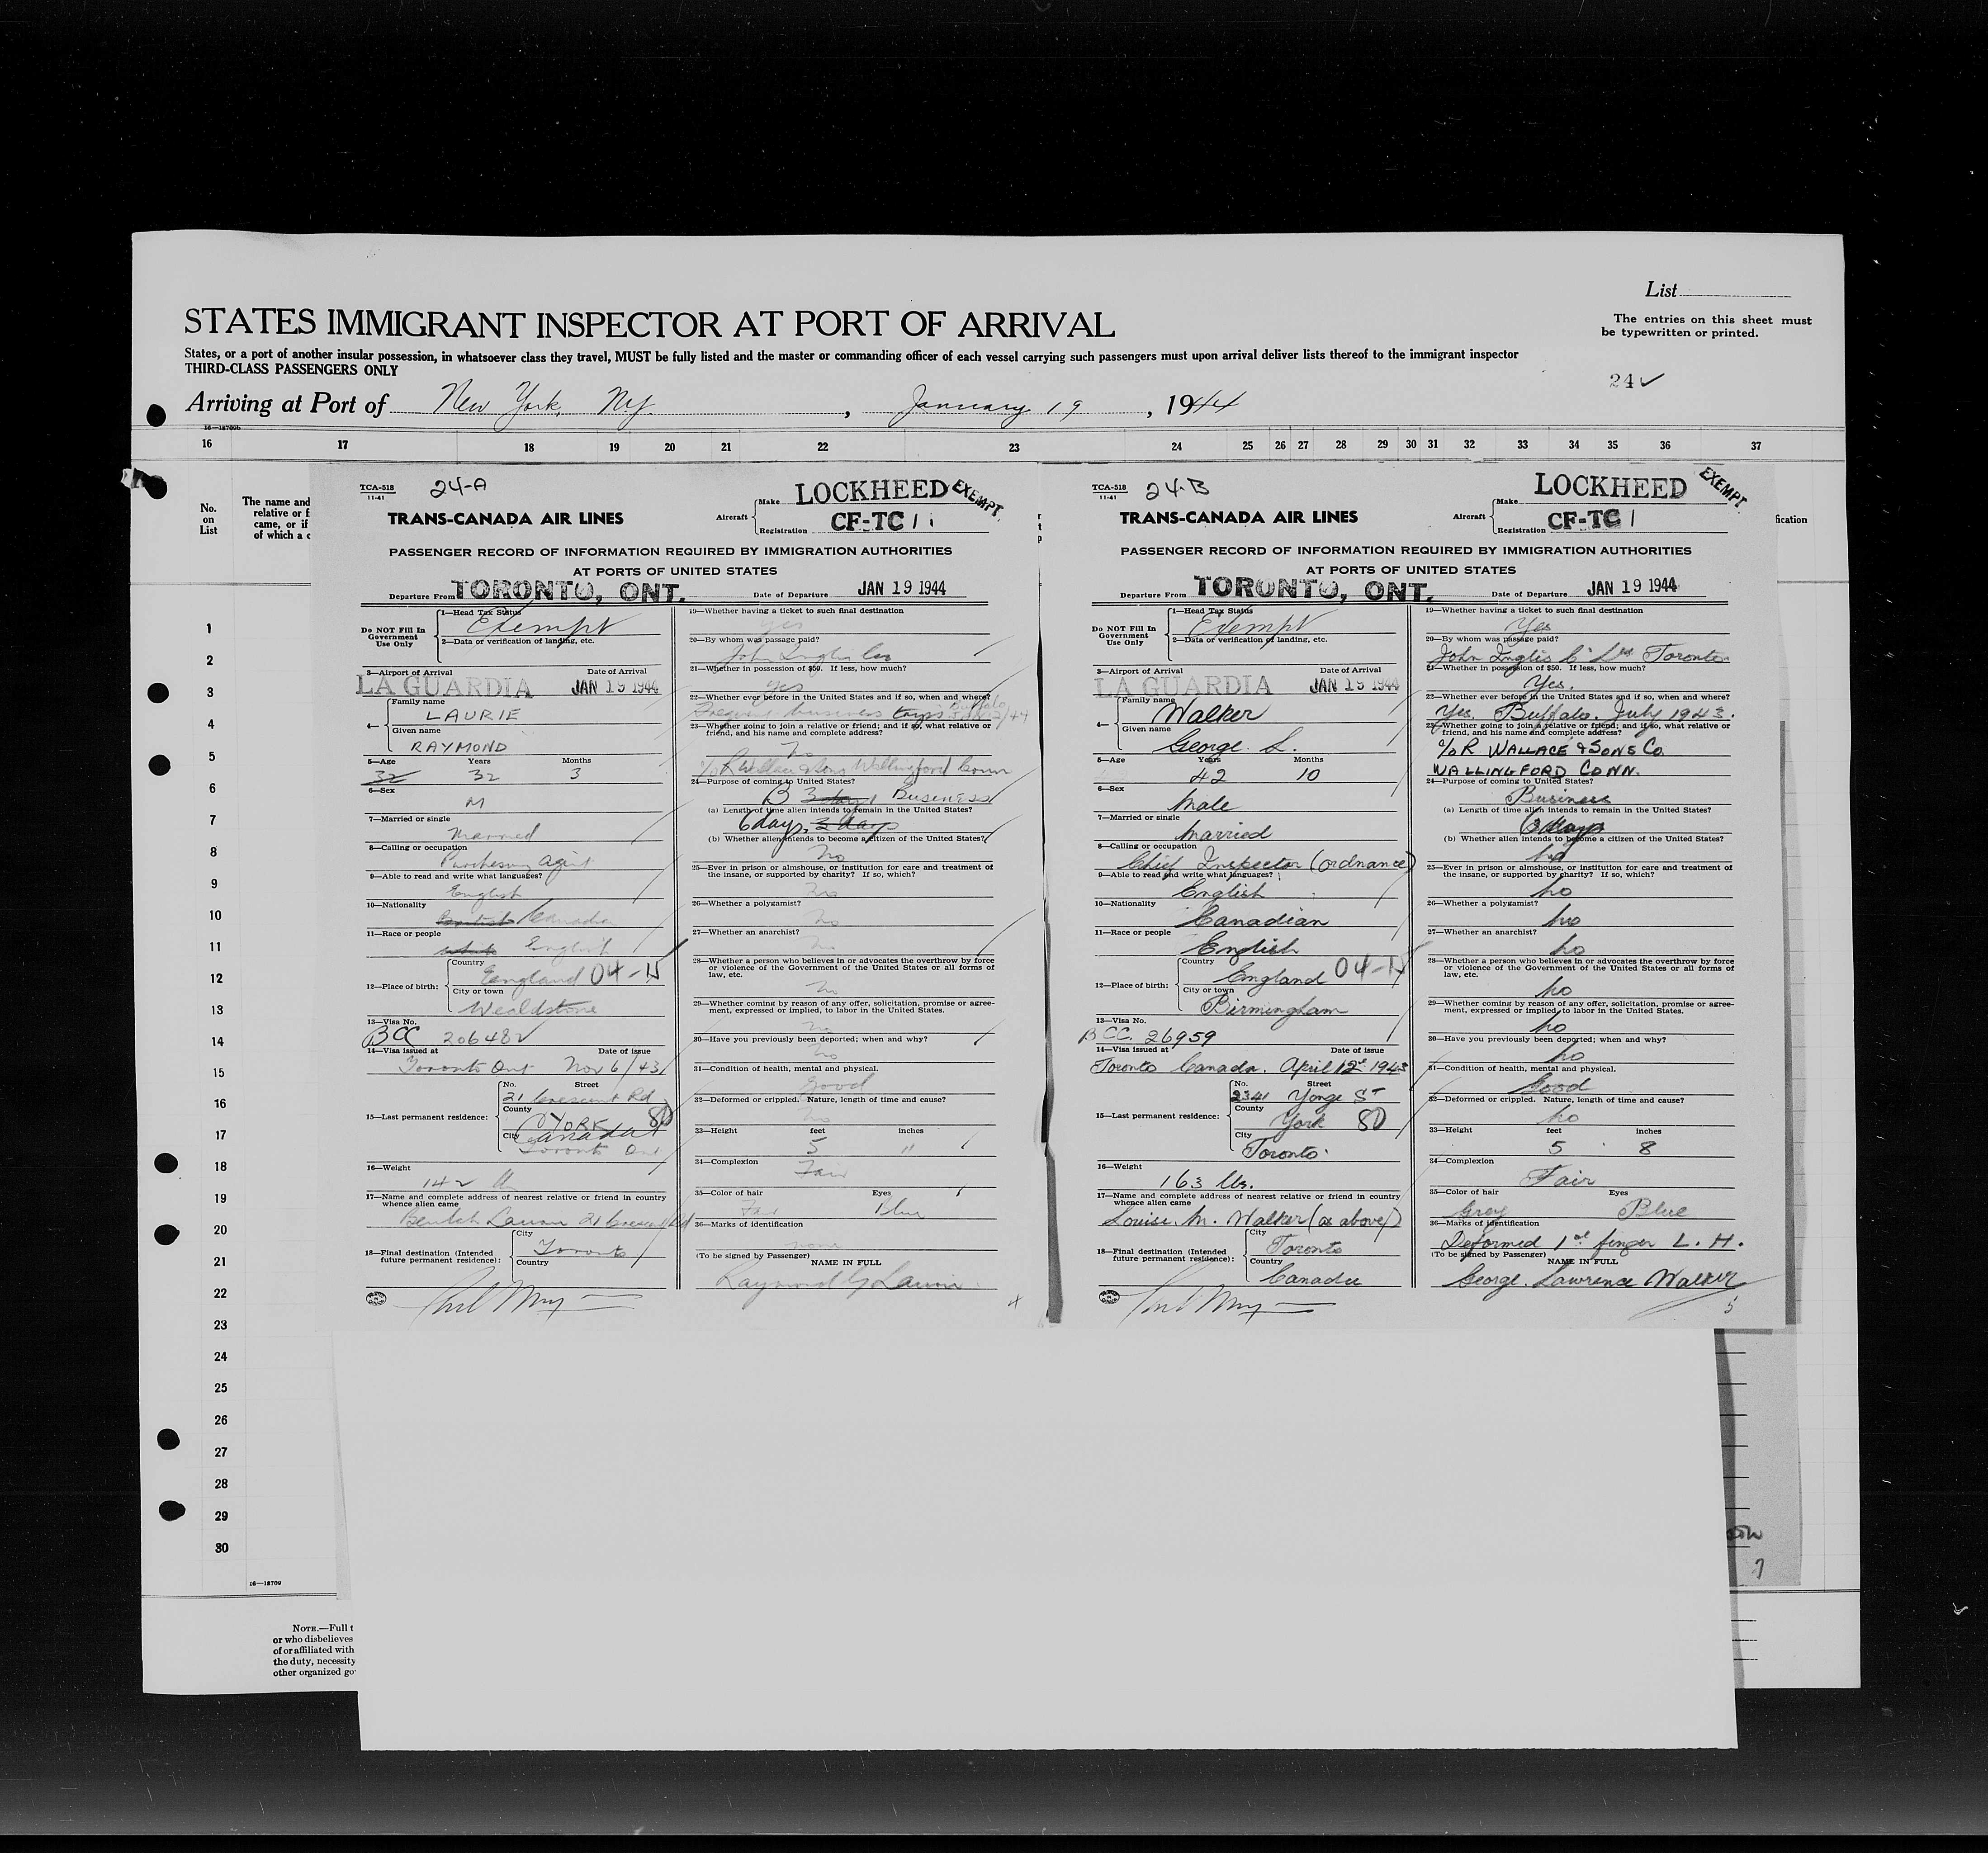 List
STATES IMMIGRANT INSPECTOR AT PORT OF ARRIVAL
The entries on this sheet must
be typewritten or printed.
States, or a port of another insular possession, in whatsoever class they travel, MUST be fully listed and the master or commanding officer of each vessel carrying such passengers must upon arrival deliver lists thereof to the immigrant inspector
THIRD-CLASS PASSENGERS ONLY
24✓
Arriving at Port of New York, N.Y. , January 19 , 1944
16 17 18 19 20 21 22 23 24 25 26 27 28 29 30 31 32 33 34 35 36 37
No.
on
List
The name and
relative or f
came, or if
of which a c
fication
1
2
3
4
5
6
7
8
9
10
11
12
13
14
15
16
17
18
19
20
21
22
23
24
25
26
27
28
29
30
16—18709
NOTE.—Full t
or who disbelieves
of or affiliated with
the duty, necessity
other organized go
TCA-518
11-41
24-A
LOCKHEED EXEMPT
Aircraft Make
Registration CF-TC
TRANS-CANADA AIR LINES
PASSENGER RECORD OF INFORMATION REQUIRED BY IMMIGRATION AUTHORITIES
AT PORTS OF UNITED STATES
Departure From TORONTO, ONT. Date of Departure JAN 19 1944
Do NOT Fill In
Government
Use Only
1—Head Tax Status
Exempt
2—Data or verification of landing, etc.
3—Airport of Arrival Date of Arrival
LA GUARDIA JAN 19 1944
4— Family name
LAURIE
Given name
RAYMOND
5—Age Years Months
32 32 3
6—Sex
M
7—Married or single
Married
8—Calling or occupation
Purchasing Agent
9—Able to read and write what languages?
English
10—Nationality
British Canada
11—Race or people
white English
12—Place of birth: Country
England 04-
City or town
Wealdstone
13—Visa No.
BCC 206482
14—Visa issued at Date of issue
Toronto Ont Nov 6/43
15—Last permanent residence: No. Street
21 Crescent Rd
County
YORK 80
City Canada
Toronto Ont
16—Weight
142
17—Name and complete address of nearest relative or friend in country
whence alien came
Beulah Laurie 21 Crescent Rd
18—Final destination (Intended
future permanent residence): City
Toronto
Country
19—Whether having a ticket to such final destination
yes
20—By whom was passage paid?
John Inglis Co
21—Whether in possession of $50. If less, how much?
yes
22—Whether ever before in the United States and if so, when and where?
Frequent business trips Buffalo
23—Whether going to join a relative or friend; and if so, what relative or
friend, and his name and complete address?
No
c/o R Wallace & Sons Wallingford Conn
24—Purpose of coming to United States?
B 3 days Business
(a) Length of time alien intends to remain in the United States?
6 days, 3 days
(b) Whether alien intends to become a citizen of the United States?
No
25—Ever in prison or almshouse, or institution for care and treatment of
the insane, or supported by charity? If so, which?
No
26—Whether a polygamist?
No
27—Whether an anarchist?
No
28—Whether a person who believes in or advocates the overthrow by force
or violence of the Government of the United States or all forms of
law, etc.
No
29—Whether coming by reason of any offer, solicitation, promise or agree-
ment, expressed or implied, to labor in the United States.
No
30—Have you previously been deported; when and why?
No
31—Condition of health, mental and physical.
Good
32—Deformed or crippled. Nature, length of time and cause?
No
33—Height feet inches
5 "
34—Complexion
Fair
35—Color of hair Eyes
Fair Blue
36—Marks of identification
none
(To be signed by Passenger) NAME IN FULL
Raymond G Laurie
4
TCA-518
11-41
24-B
LOCKHEED EXEMPT
Aircraft Make
Registration CF-TC
TRANS-CANADA AIR LINES
PASSENGER RECORD OF INFORMATION REQUIRED BY IMMIGRATION AUTHORITIES
AT PORTS OF UNITED STATES
Departure From TORONTO, ONT. Date of Departure JAN 19 1944
Do NOT Fill In
Government
Use Only
1—Head Tax Status
Exempt
2—Data or verification of landing, etc.
3—Airport of Arrival Date of Arrival
LA GUARDIA JAN 19 1944
4— Family name
Walker
Given name
George L.
5—Age Years Months
42 10
6—Sex
Male
7—Married or single
Married
8—Calling or occupation
Chief Inspector (ordnance)
9—Able to read and write what languages?
English
10—Nationality
Canadian
11—Race or people
English
12—Place of birth: Country
England 04-
City or town
Birmingham
13—Visa No.
BCC. 26959
14—Visa issued at Date of issue
Toronto Canada. April 12d 1943
15—Last permanent residence: No. Street
2341 Yonge ST
County
York 80
City
Toronto
16—Weight
163 lbs.
17—Name and complete address of nearest relative or friend in country
whence alien came
Louise M. Walker (as above)
18—Final destination (Intended
future permanent residence): City
Toronto
Country
Canada
19—Whether having a ticket to such final destination
Yes
20—By whom was passage paid?
John Inglis Co Ltd Toronto
21—Whether in possession of $50. If less, how much?
Yes.
22—Whether ever before in the United States and if so, when and where?
Yes, Buffalo. July 1943.
23—Whether going to join a relative or friend; and if so, what relative or
friend, and his name and complete address?
c/o R WALLACE & SONS CO.
WALLINGFORD CONN.
24—Purpose of coming to United States?
Business
(a) Length of time alien intends to remain in the United States?
(b) Whether alien intends to become a citizen of the United States?
no
25—Ever in prison or almshouse, or institution for care and treatment of
the insane, or supported by charity? If so, which?
no
26—Whether a polygamist?
no
27—Whether an anarchist?
no
28—Whether a person who believes in or advocates the overthrow by force
or violence of the Government of the United States or all forms of
law, etc.
no
29—Whether coming by reason of any offer, solicitation, promise or agree-
ment, expressed or implied, to labor in the United States.
no
30—Have you previously been deported; when and why?
no
31—Condition of health, mental and physical.
Good
32—Deformed or crippled. Nature, length of time and cause?
no
33—Height feet inches
5 8
34—Complexion
Fair
35—Color of hair Eyes
Grey Blue
36—Marks of identification
Deformed 1st finger L. H.
(To be signed by Passenger) NAME IN FULL
George Lawrence Walker
5